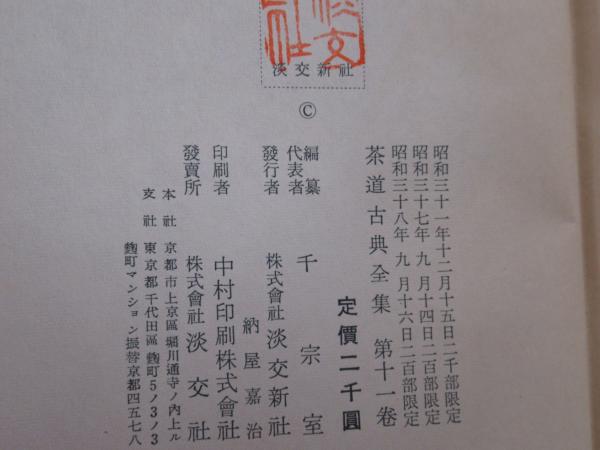 淡交新社
©
昭和三十一年十二月十五日二千部限定
昭和三十七年 九 月十四日二百部限定
昭和三十八年 九 月十六日二百部限定
茶道古典全集 第十一卷
定價二千圓
編纂代表者 千宗室
發行者 株式會社淡交新社
納屋嘉治
印刷者 中村印刷株式會社
發賣所 株式會社淡交社
本社 京都市上京區堀川通寺ノ內上ル
支社 東京都千代田區麴町5ノ3ノ3
麴町マンション 振替京都四五七八